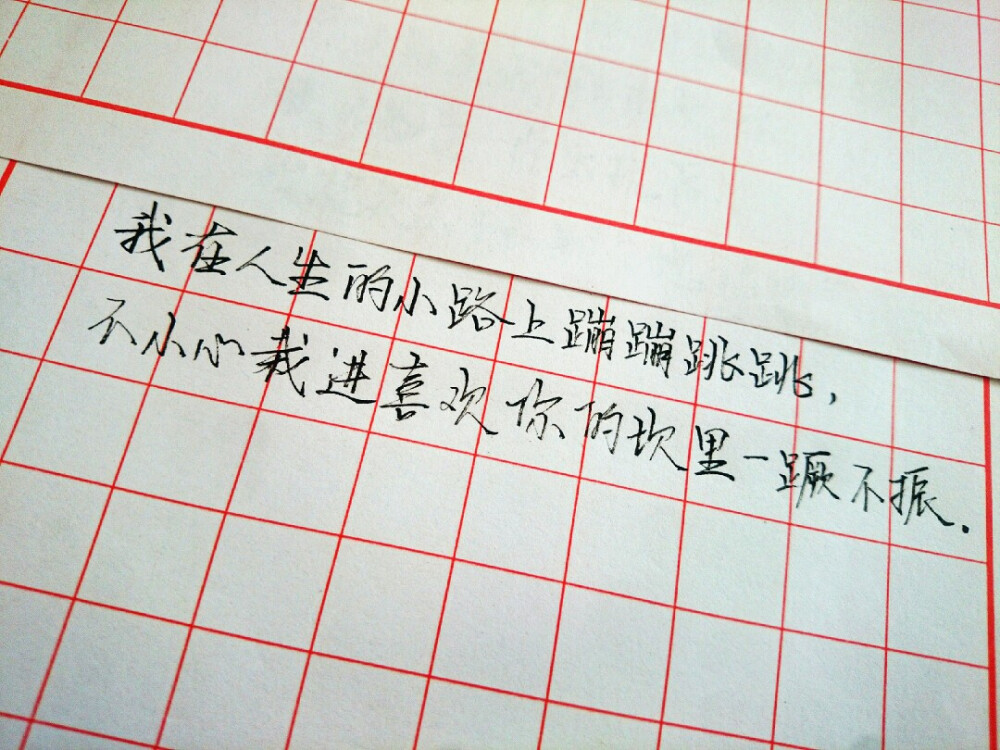 我在人生的小路上蹦蹦跳跳,
不小心栽进喜欢你的坎里一蹶不振.